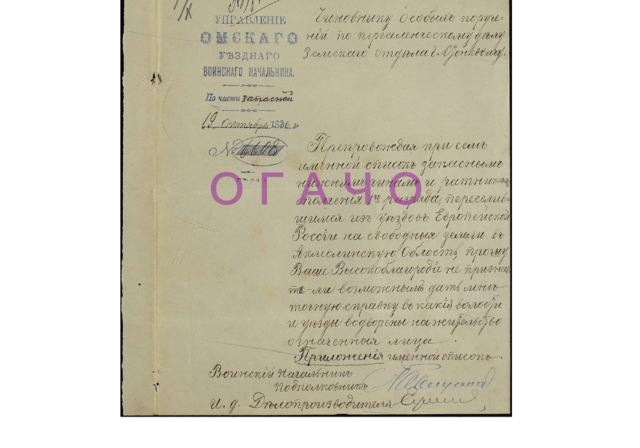 Чиновнику Особыхъ поруче-
ній по переселенческому дѣлу
Земскаго отдѣла г.
УПРАВЛЕНІЕ
ОМСКАГО
УѢЗДНАГО
ВОИНСКАГО НАЧАЛЬНИКА.
По части запасной
19 октября 1896 г.
№
Препровождая при семъ
именной списокъ запаснымъ
нижнимъ чинамъ и ратникамъ
ополченія 1го разряда, переселив-
шимся изъ уѣздовъ Европейской
Россіи на свободныя земли въ
Акмолинскую Область, прошу
Ваше Высокоблагородіе не признае-
те-ли возможнымъ дать мнѣ
точную справку въ какія волости
и уѣзды водворены на жительство
означенныя лица.
Приложеніе: именной списокъ.
Воинскій Начальникъ
Подполковникъ
И. д. Дѣлопроизводителя
ОГАЧО